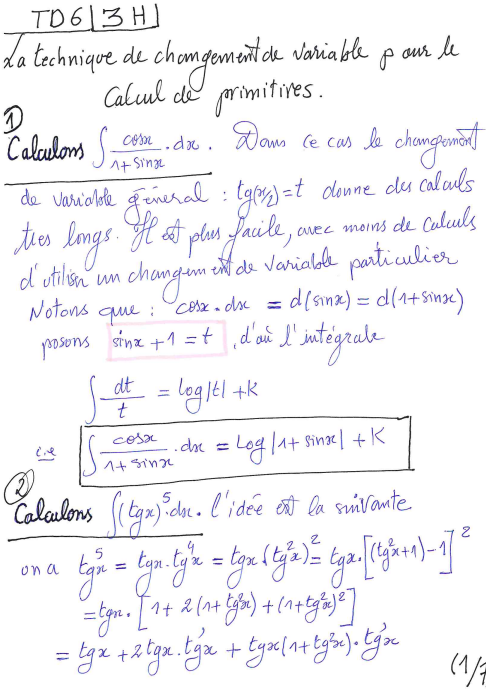 TD6 | 3H |
La technique de changement de variable pour le
Calcul de primitives.
1) Calculons ∫ cosx/(1+sinx) . dx. Dans ce cas le changement
de variable général : tg(x/2)=t donne des calculs
tres longs. Il est plus facile, avec moins de calculs
d'utiliser un changement de variable particulier
Notons que : cosx.dx = d(sinx) = d(1+sinx)
posons sinx+1=t, d'où l'intégrale
∫ dt/t = log|t| + K
i.e ∫ cosx/(1+sinx) . dx = Log|1+sinx| + K
2) Calculons ∫(tgx)^5.dx. l'idée est la suivante
on a tg^5x = tgx.tg^4x = tgx.(tg^2x)^2 = tgx.[(tg^2x+1)-1]^2
=tgx.[1+2(1+tg^2x)+(1+tg^2x)^2]
= tgx+2tgx.tg'x + tgx(1+tg^2x).tg'x
(1/7